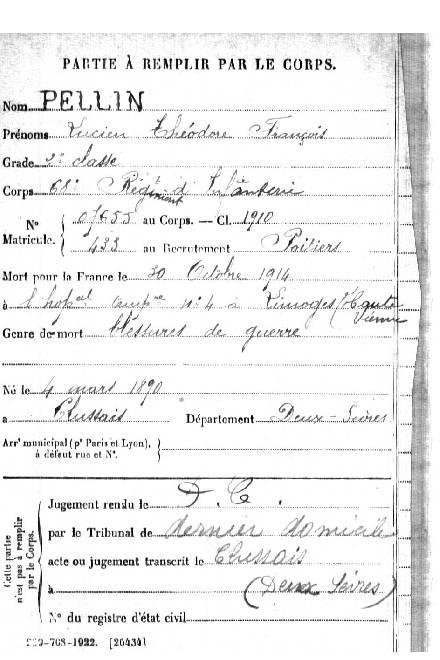 PARTIE À REMPLIR PAR LE CORPS.
Nom PELLIN
Prénoms Lucien Théodore François
Grade 2e classe
Corps 68e Régiment d'Infanterie
N° 07655 au Corps. — Cl. 1910
Matricule. 433 au Recrutement Poitiers
Mort pour la France le 30 Octobre 1914
à l'hopal compre n°4 à Limoges (Haute
Vienne
Genre de mort blessures de guerre
Né le 4 mars 1890
à Clussais Département Deux-Sèvres
Arrt municipal (pr Paris et Lyon),
à défaut rue et N°.
Cette partie
n'est pas à remplir
par le Corps.
Jugement rendu le D. C.
par le Tribunal de dernier domicile
acte ou jugement transcrit le Clussais
à (Deux Sèvres)
N° du registre d'état civil
-708-1922. [26434]